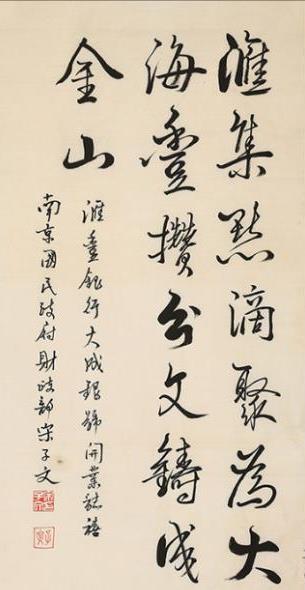 滙集點滴聚為大
海豐攢分文鑄成
金山
滙豐銀行大成銀號開業誌禧
南京國民政府財政部宋子文